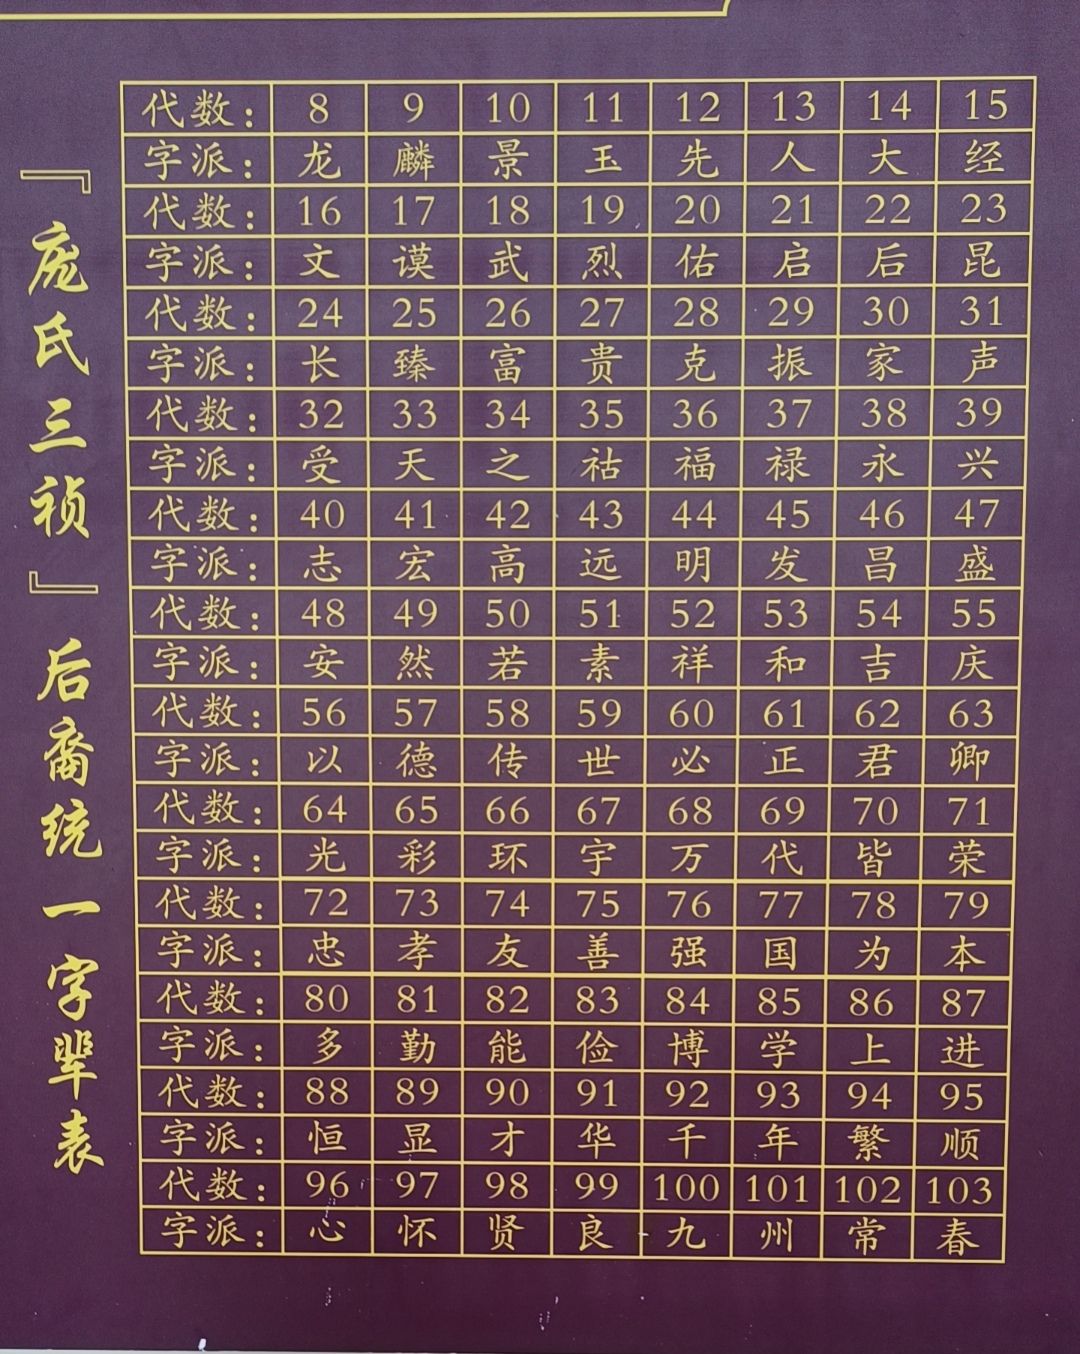 『庞氏三祯』后裔统一字辈表
代数： 8 9 10 11 12 13 14 15
字派： 龙 麟 景 玉 先 人 大 经
代数： 16 17 18 19 20 21 22 23
字派： 文 谟 武 烈 佑 启 后 昆
代数： 24 25 26 27 28 29 30 31
字派： 长 臻 富 贵 克 振 家 声
代数： 32 33 34 35 36 37 38 39
字派： 受 天 之 祜 福 禄 永 兴
代数： 40 41 42 43 44 45 46 47
字派： 志 宏 高 远 明 发 昌 盛
代数： 48 49 50 51 52 53 54 55
字派： 安 然 若 素 祥 和 吉 庆
代数： 56 57 58 59 60 61 62 63
字派： 以 德 传 世 必 正 君 卿
代数： 64 65 66 67 68 69 70 71
字派： 光 彩 环 宇 万 代 皆 荣
代数： 72 73 74 75 76 77 78 79
字派： 忠 孝 友 善 强 国 为 本
代数： 80 81 82 83 84 85 86 87
字派： 多 勤 能 俭 博 学 上 进
代数： 88 89 90 91 92 93 94 95
字派： 恒 显 才 华 千 年 繁 顺
代数： 96 97 98 99 100 101 102 103
字派： 心 怀 贤 良 九 州 常 春